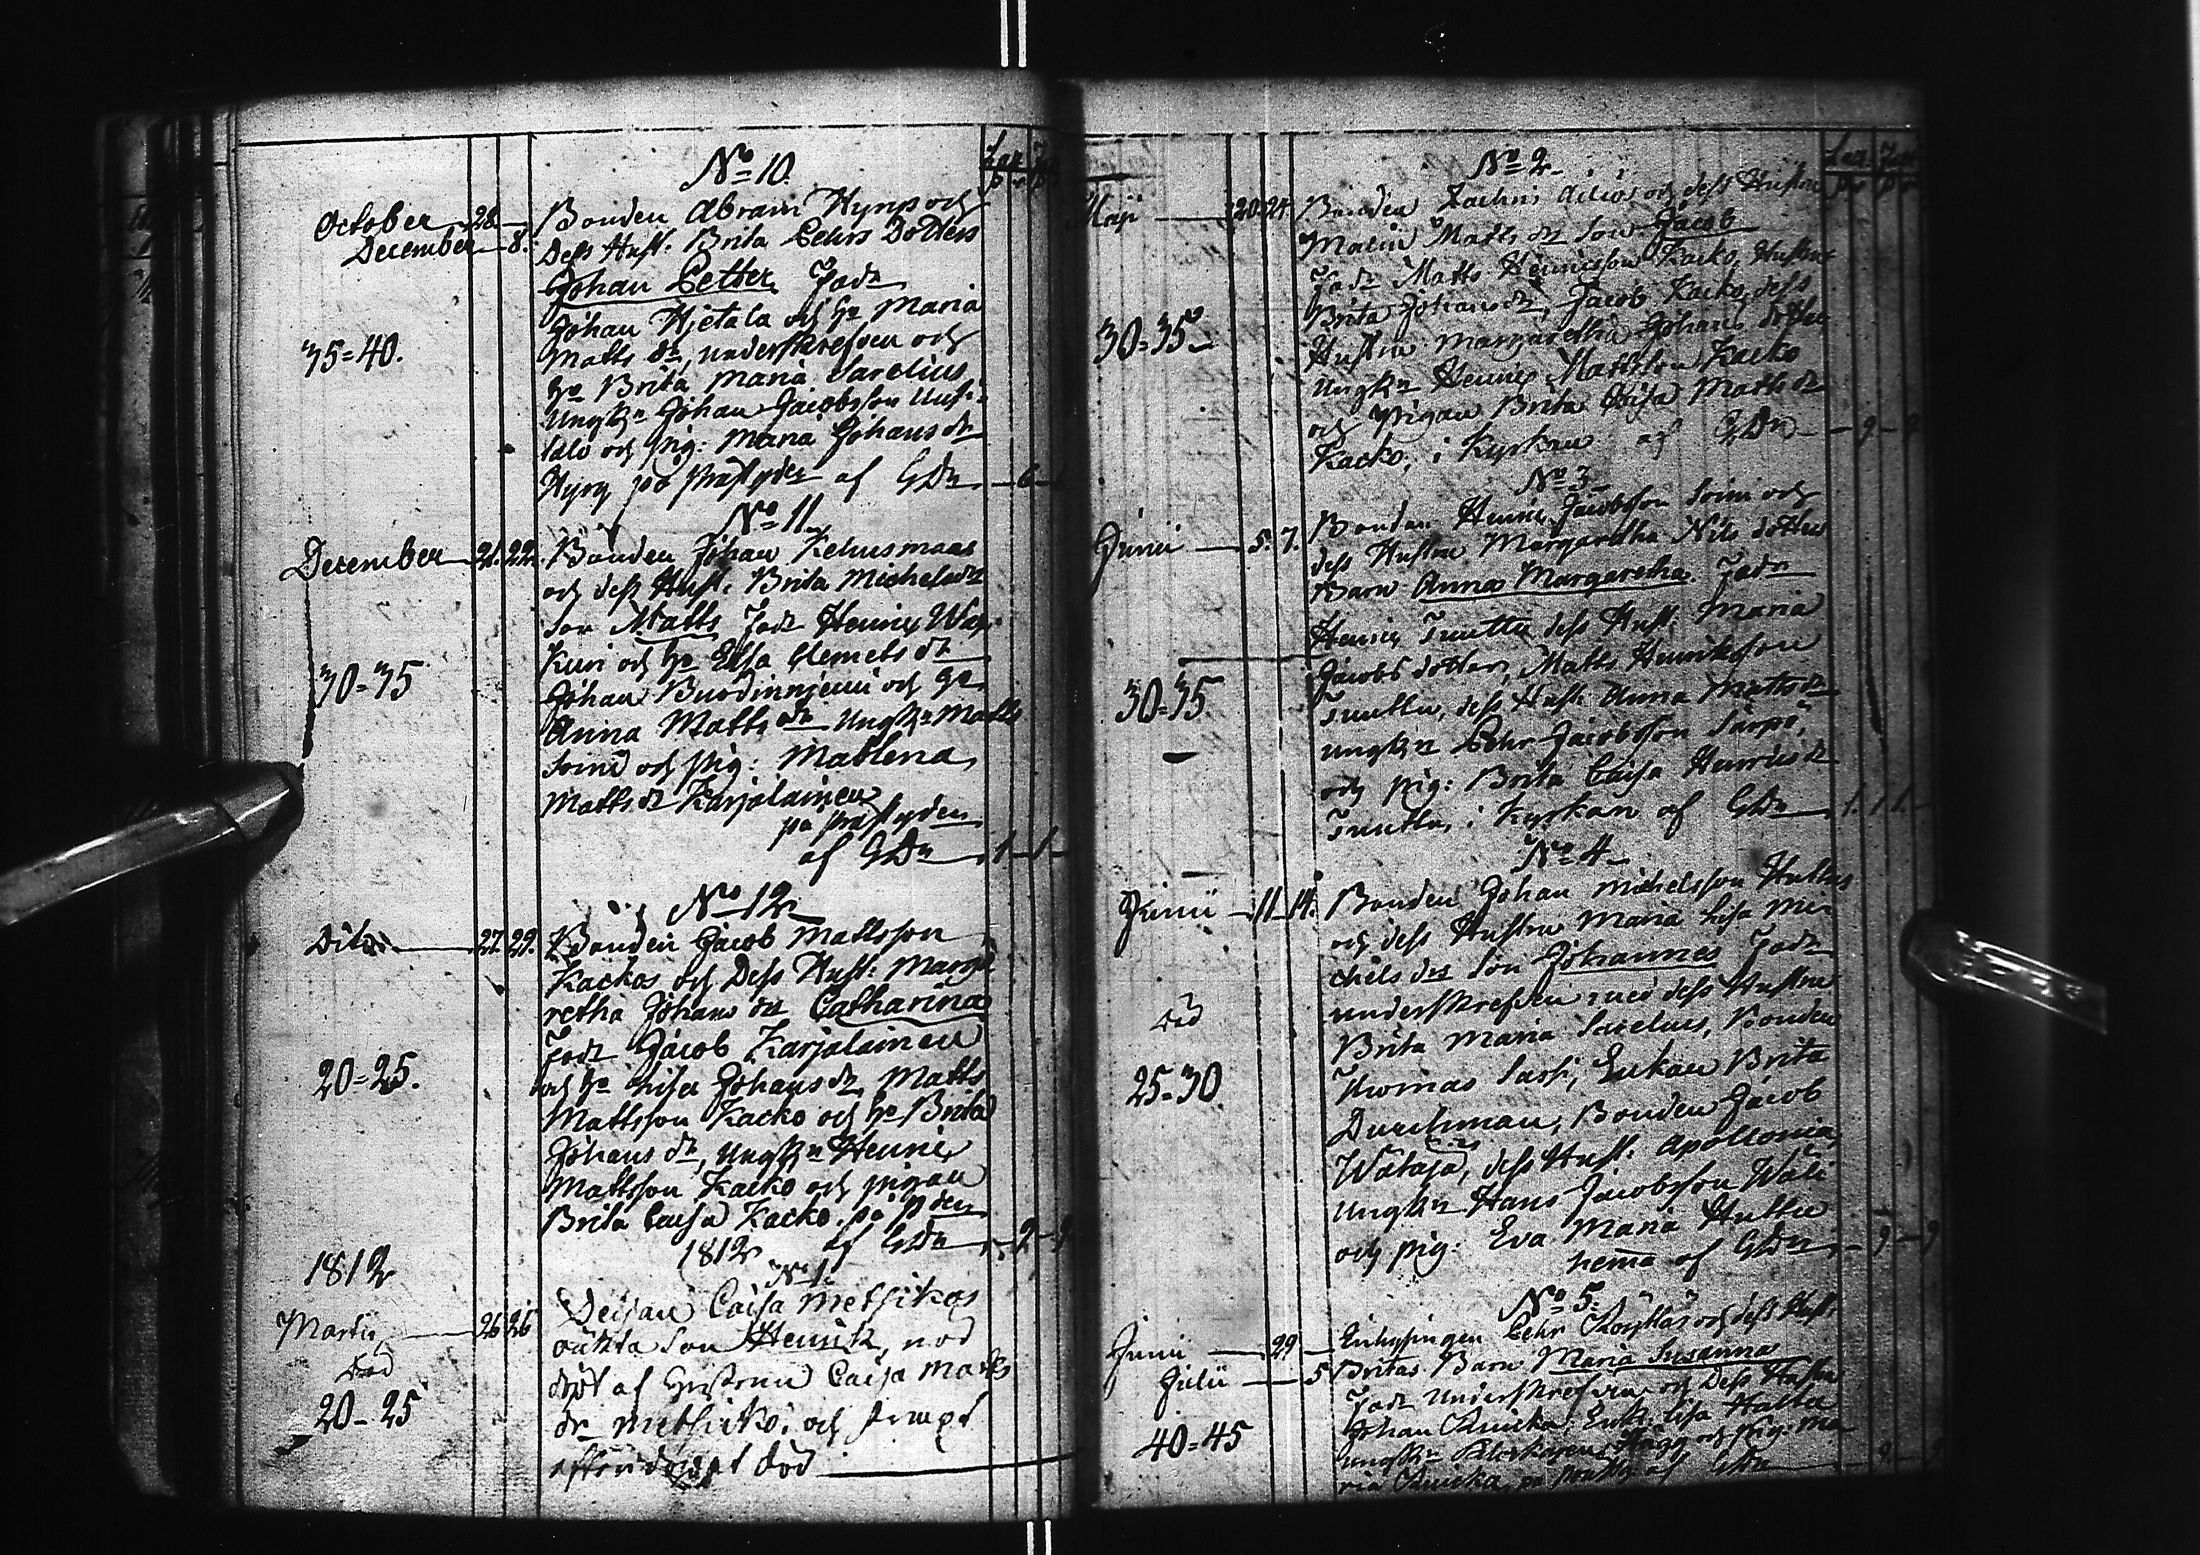 No 10.
October 28.
December 8.
Bonden Abram Hyrys och
Dess Hust: Brita Pehrs Dotters
Johan Petter, Fadr
Johan Hjetala och ho Maria
35=40.
Matts dr, underskrefven och
ho Brita Maria Sarelius
Ungkn Johan Jacobsson Uusi-
talo och pig: Maria Johans dr
Hyry på prästgden af GDn 6
No 11
December 21. 22.
Bonden Johan Kehusmaas
och dess Hust: Brita Michels dr
Son Matts Fadr Henric
Kuri och ho Elsa Clemets dr
30=35
Johan och ho
Anna Matts dr Ungkn Matts
Soini och pig: Mathlena
Matts dr Karjalainen
på prästgden
af GDn 1 1
No 12
Dito 27. 29.
Bonden Jacob Mattsson
Kackos och Dess Hust: Marga
retha Johans dr Catharina
Fadr Jacob Karjalainen
20=25.
och ho Lisa Johans dr, Matts
Mattsson Kacko och ho Brita
Johans dr, ungkn Henric
Mattsson Kacko och pigan
Brita Caisa Kacko, på pgden
af GDn 9 9
1812
1812
No 1.
Martii 26 26
Deijan Caisa Metsikos
oäkta Son Henrik, nöd
död
döpt af Caisa Matts
20-25
dr Metsikko, och
död
Lap. Fogt
No 2
Maji 20. 24.
Bonden och dess Hustru
Malin Matts dr Son Jacob
Fadr Matts Henricsson Kacko, Hustru
Brita Johans dr, Jacob Kacko, dess
30=35
Hustru Margaretha Johans dotter
Ungkn Henric Mattsson Kacko
och Pigan Brita Caisa Matts dr
Kacko, i Kyrkan af GDn 9 9
No 3
Junii 5. 7.
Bonden Henric Jacobsson Soini och
dess Hustru Margaretha Nils dotters
Barn Anna Margaretha Fadr
Henric dess Hust: Maria
Jacobs dotter, Matts Henriksson
30=35
dess Hust: Anna Matts dr
ungkn Pehr Jacobsson Särpö,
och pig: Brita Caisa Henrics dr
i Kyrkan af GDn 1. 1 1.
No 4
Junii 11 14.
Bonden Johan Michelsson Huttus
och dess Hustru Maria Lisa Mi-
chels drs Son Johannes Fadr
död
underskrefven med dess Hustru
Brita Maria Sarelius, Bonden
25=30.
Thomas Sassi, Enkan Brita
Bonden Jacob
Wätäjä, dess Hust: Apollonia
ungkn Hans Jacobsson Wäli
och pig: Eva Maria Huttu
hemma af GDn 9 9
No 5.
Junii 29
Pehr och dess Hust:
Julii 5
Britas Barn Maria Susanna
Fadr Underskrefven och Dess Hustru
40=45
Johan Enk: Lisa
ungkn och pig: Ma
ria af GDn 9 9